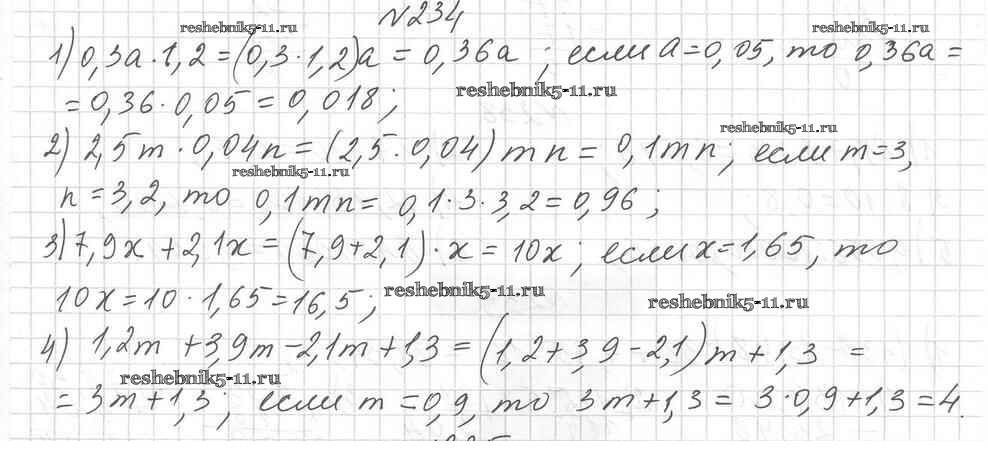 №234
reshebnik5-11.ru reshebnik5-11.ru
1) 0,3a·1,2=(0,3·1,2)a = 0,36a ; если a=0,05, то 0,36a =
= 0,36·0,05 = 0,018;
reshebnik5-11.ru
reshebnik5-11.ru
2) 2,5m·0,04n=(2,5·0,04)mn= 0,1mn; если m=3,
reshebnik5-11.ru
n=3,2, то 0,1mn= 0,1·3·3,2=0,96;
3) 7,9x+2,1x=(7,9+2,1)·x=10x; если x=1,65, то
10x=10·1,65=16,5;
reshebnik5-11.ru
reshebnik5-11.ru
4) 1,2m +3,9m-2,1m+1,3=(1,2+3,9-2,1)m+1,3 =
reshebnik5-11.ru
= 3m+1,3; если m=0,9, то 3m+1,3= 3·0,9+1,3=4.